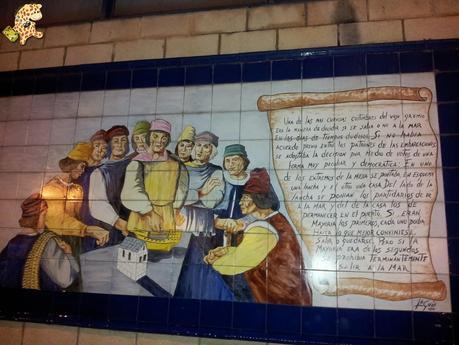 Una de las mas curiosas costumbres del viejo gremio
era la manera de decidir si se salia o no a la mar
en los dias de tiempos dudosos. Si no habia
acuerdo previo entre los patrones de las embarcaciones
se adoptaba la decision por medio de votos de una
forma muy peculiar y democratica: En uno
de los extremos de la mesa se ponia, en esquema
una lancha y el otro una casa. Del lado de la
lancha se ponian los partidarios de ir
a la mar y del de la casa los de
permanecer en el puerto. Si eran
mayoria los primeros, cada uno podia
hasta lo que mejor conviniese,
salir o quedarse. Pero si la
mayoria era de los segundos
se prohibia terminantemente
salir a la mar.